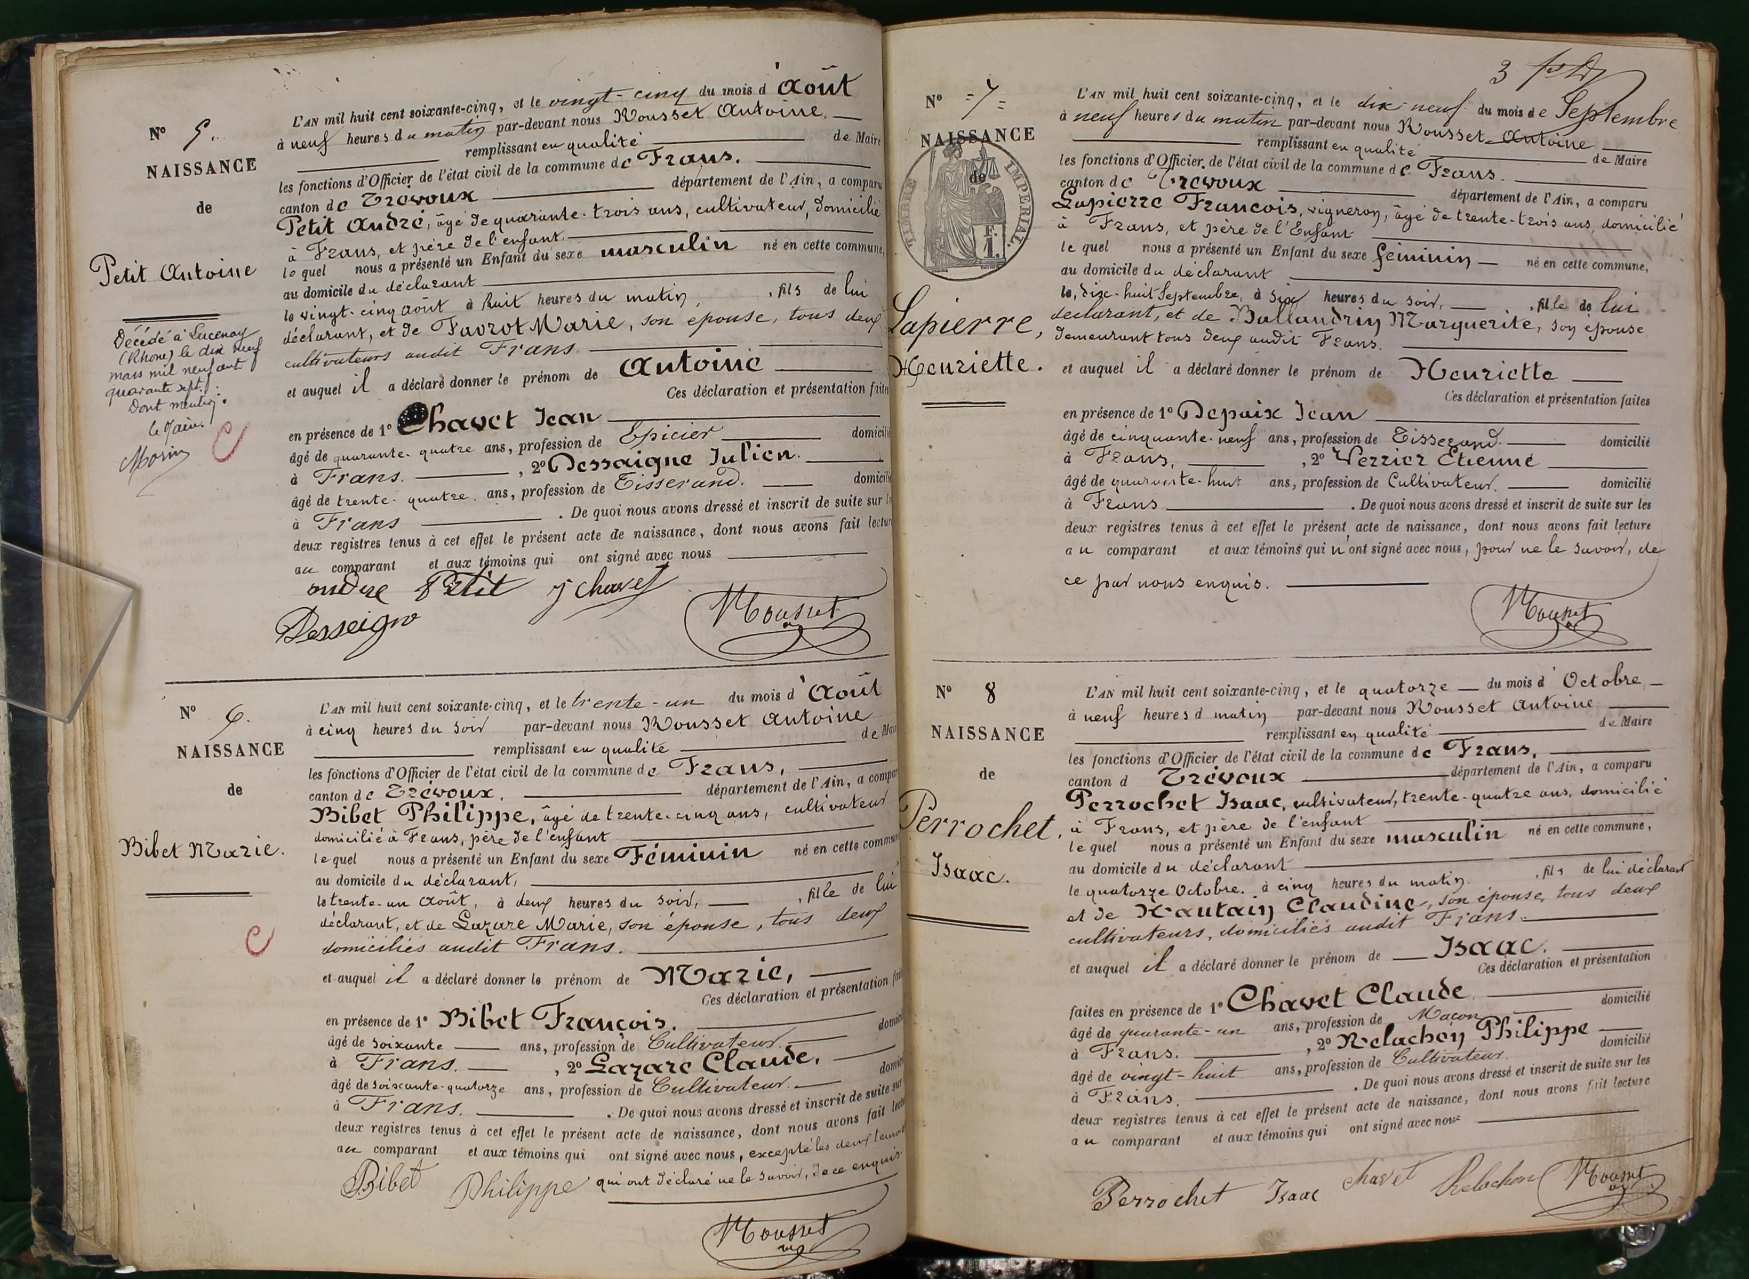 N° 5.
NAISSANCE
de
Petit Antoine
Décédé à Lucenay
(Rhône) le dix neuf
mars mil neuf cent
quarante sept.
Dont mention.
le Maire.
Morin
L'AN mil huit cent soixante-cinq, et le vingt-cinq du mois d'Août
à neuf heures du matin par-devant nous Rousset Antoine,
remplissant en qualité de Maire
les fonctions d'Officier de l'état civil de la commune de Frans.
canton de Trévoux département de l'Ain, a comparu
Petit André, âgé de quarante-trois ans, cultivateur, domicilié
à Frans, et père de l'enfant
le quel nous a présenté un Enfant du sexe masculin né en cette commune,
au domicile du déclarant
le vingt-cinq août à huit heures du matin, , fils de lui
déclarant, et de Favrot Marie, son épouse, tous deux
cultivateurs audit Frans.
et auquel il a déclaré donner le prénom de Antoine
Ces déclaration et présentation faites
en présence de 1° Chavet Jean
âgé de quarante-quatre ans, profession de Epicier domicilié
à Frans. , 2° Dessaigne Julien.
âgé de trente-quatre ans, profession de Tisserand. domicilié
à Frans . De quoi nous avons dressé et inscrit de suite sur les
deux registres tenus à cet effet le présent acte de naissance, dont nous avons fait lecture
au comparant et aux témoins qui ont signé avec nous
andre Petit J chavet
Desseigne
Rousset
N° 6.
NAISSANCE
de
Bibet Marie.
L'AN mil huit cent soixante-cinq, et le trente-un du mois d'Août
à cinq heures du soir par-devant nous Rousset Antoine
remplissant en qualité de Maire
les fonctions d'Officier de l'état civil de la commune de Frans,
canton de Trévoux, département de l'Ain, a comparu
Bibet Philippe, âgé de trente-cinq ans, cultivateur
domicilié à Frans, père de l'enfant
le quel nous a présenté un Enfant du sexe Féminin né en cette commune
au domicile du déclarant,
le trente-un Août, à deux heures du soir, , fille de lui
déclarant, et de Lazare Marie, son épouse, tous deux
domiciliés audit Frans.
et auquel il a déclaré donner le prénom de Marie,
Ces déclaration et présentation faites
en présence de 1° Bibet François.
âgé de soixante ans, profession de Cultivateur. domicilié
à Frans. , 2° Lazare Claude,
âgé de soixante-quatorze ans, profession de Cultivateur. domicilié
à Frans. . De quoi nous avons dressé et inscrit de suite sur
deux registres tenus à cet effet le présent acte de naissance, dont nous avons fait lecture
au comparant et aux témoins qui ont signé avec nous, excepté les deux témoins
Bibet Philippe qui ont déclaré ne le savoir, de ce enquis.
Rousset
3
N° =7=
NAISSANCE
de
TIMBRE IMPERIAL.
F.
1.
Lapierre,
Henriette.
L'AN mil huit cent soixante-cinq, et le dix-neuf du mois de Septembre
à neuf heures du matin par-devant nous Rousset Antoine
remplissant en qualité de Maire
les fonctions d'Officier de l'état civil de la commune de Frans.
canton de Trévoux département de l'Ain, a comparu
Lapierre François, vigneron, âgé de trente-trois ans, domicilié
à Frans, et père de l'Enfant
le quel nous a présenté un Enfant du sexe féminin né en cette commune,
au domicile du déclarant
le, dix-huit Septembre, à six heures du soir, , fille de lui
déclarant, et de Ballaudrin Marguerite, son épouse
demeurant tous deux audit Frans.
et auquel il a déclaré donner le prénom de Henriette
Ces déclaration et présentation faites
en présence de 1° Depaix Jean
âgé de cinquante-neuf ans, profession de Tisserand. domicilié
à Frans, , 2° Verrier Etienne
âgé de quarante-huit ans, profession de Cultivateur. domicilié
à Frans . De quoi nous avons dressé et inscrit de suite sur les
deux registres tenus à cet effet le présent acte de naissance, dont nous avons fait lecture
au comparant et aux témoins qui n'ont signé avec nous, pour ne le savoir, de
ce par nous enquis.
Rousset
N° 8
NAISSANCE
de
Perrochet,
Isaac.
L'AN mil huit cent soixante-cinq, et le quatorze du mois d'Octobre
à neuf heures d matin par-devant nous Rousset Antoine
remplissant en qualité de Maire
les fonctions d'Officier de l'état civil de la commune de Frans,
canton d Trévoux département de l'Ain, a comparu
Perrochet Isaac, cultivateur, trente-quatre ans, domicilié
à Frans, et père de l'enfant
le quel nous a présenté un Enfant du sexe masculin né en cette commune,
au domicile du déclarant
le quatorze Octobre, à cinq heures du matin , fils de lui déclarant
et de Nautain Claudine, son épouse, tous deux
cultivateurs, domiciliés audit Frans.
et auquel il a déclaré donner le prénom de Isaac.
Ces déclaration et présentation
faites en présence de 1° Chavet Claude
âgé de quarante-un ans, profession de Maçon domicilié
à Frans. , 2° Relachon Philippe
âgé de vingt-huit ans, profession de Cultivateur. domicilié
à Frans. . De quoi nous avons dressé et inscrit de suite sur les
deux registres tenus à cet effet le présent acte de naissance, dont nous avons fait lecture
au comparant et aux témoins qui ont signé avec nous
Perrochet Isaac chavet Relachon Rousset